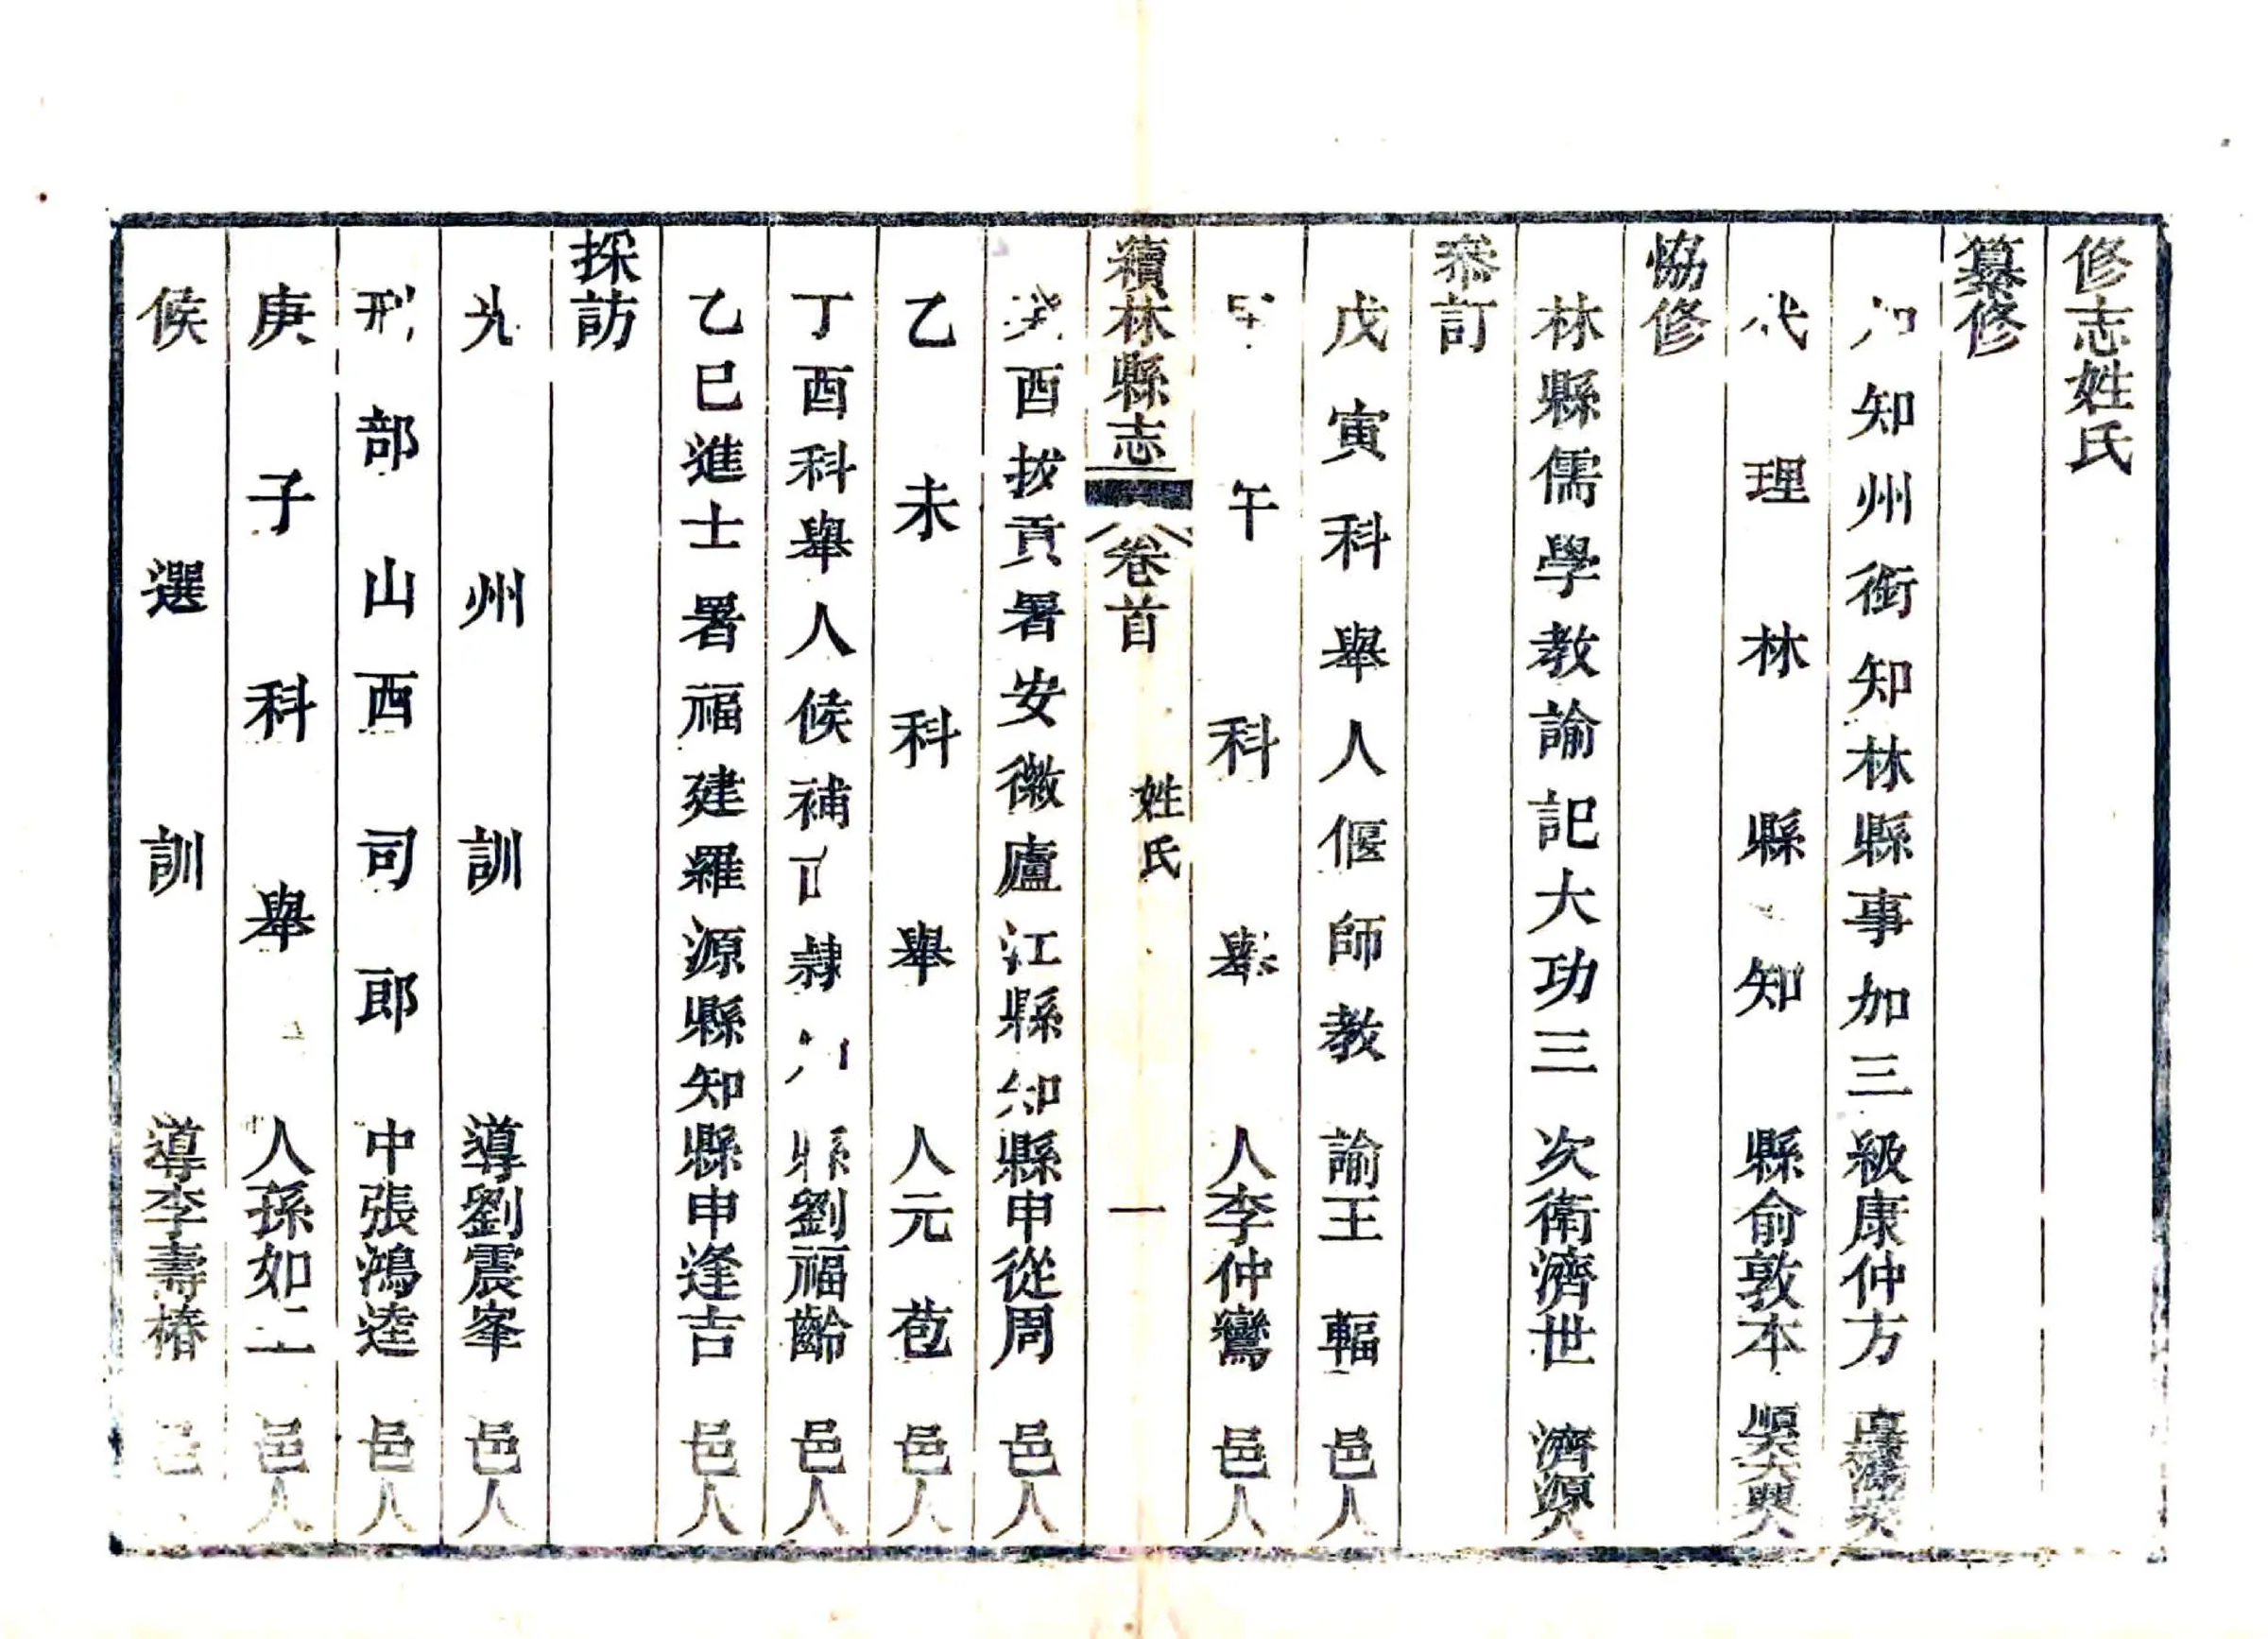 修志姓氏
纂修
知州銜知林縣事加三級康仲方
代理林縣知縣俞敦本
協修
林縣儒學教諭記大功三次衛濟世 濟源人
叅訂
戊寅科舉人偃師教諭王輻 邑人
午科舉人李仲鸞 邑人
續林縣志 卷首 姓氏 一
癸酉拔貢署安徽廬江縣知縣申從周 邑人
乙未科舉人元苞 邑人
丁酉科舉人候補直隸州劉福齡 邑人
乙巳進士署福建羅源縣知縣申逢吉 邑人
採訪
光州訓導劉震峯 邑人
刑部山西司郎中張鴻逵 邑人
庚子科舉人孫如 邑人
候選訓導李壽椿 邑